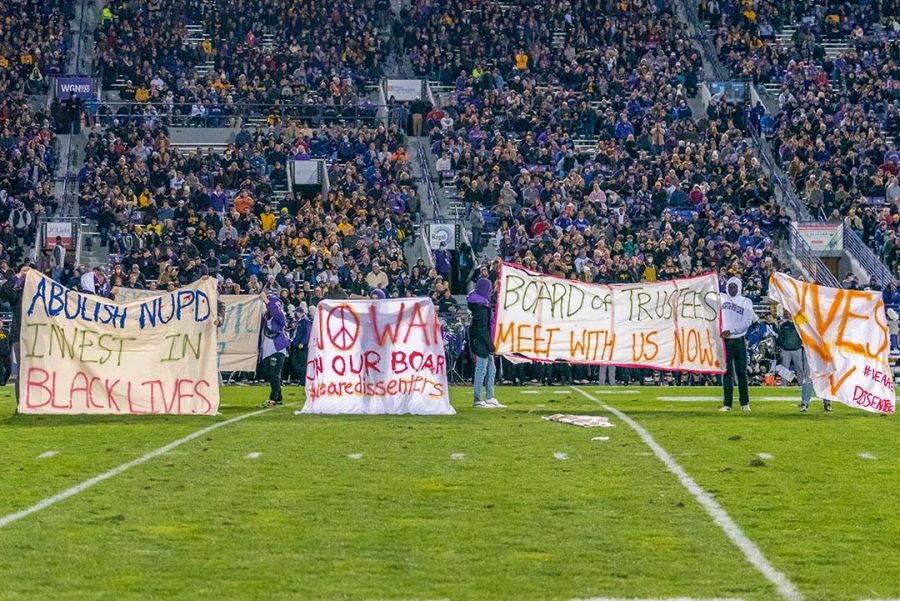 WGN
ABOLISH NUPD
INVEST IN
BLACK LIVES
NO WAR
ON OUR BOAR
#wearedissenters
BOARD OF TRUSTEES
MEET WITH US NOW
#WEARE
DISSENTE